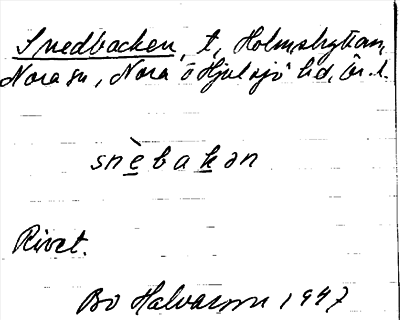 Snedbacken, t, Holmshyttan,
Nora sn, Nora o Hjulsjö bd, Ör. l.
snèbakən
Rivet.
Bo Halvarson 1947